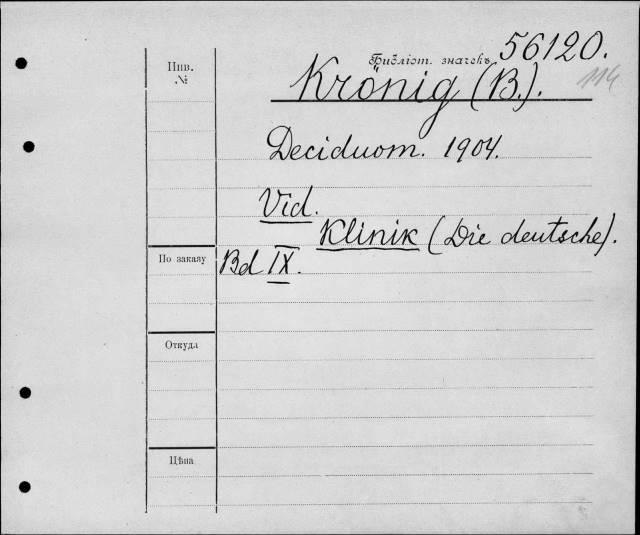 Инв.
№
Библіот. значекъ 56120.
Krönig (B.).
114
Deciduom. 1904.
Vid.
Klinik (Die deutsche).
По заказу
Bd IX.
Откуда
Цѣна